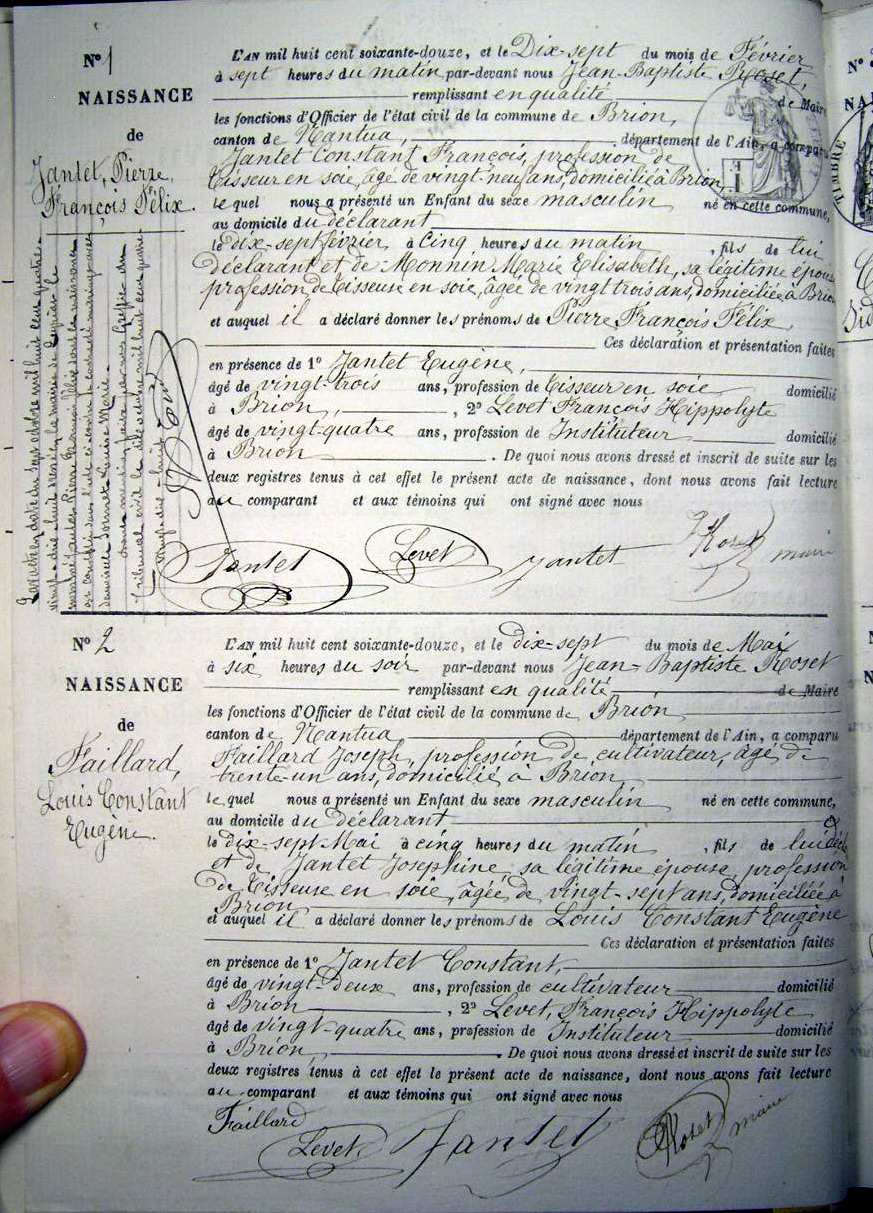 N° 1
NAISSANCE
de
Jantet, Pierre
François Félix.
L'AN mil huit cent soixante-douze, et le Dix-sept du mois de Février
à sept heures du matin par-devant nous Jean-Baptiste Roset,
remplissant en qualité de Maire
les fonctions d'Officier de l'état civil de la commune de Brion,
canton de Nantua, département de l'Ain, a comparu
Jantet Constant François, profession de
Tisseur en soie, âgé de vingt-neuf ans, domicilié à Brion,
le quel nous a présenté un Enfant du sexe masculin né en cette commune,
au domicile du déclarant
le dix-sept février à Cinq heures du matin, fils de lui
déclarant et de Monnin Marie Elisabeth, sa légitime épouse
profession de Tisseuse en soie, âgée de vingt trois ans, domiciliée à Brion
et auquel il a déclaré donner les prénoms de Pierre François Félix,
Ces déclaration et présentation faites
en présence de 1° Jantet Eugène,
âgé de vingt-trois ans, profession de Tisseur en soie domicilié
à Brion, , 2° Levet François Hippolyte
âgé de vingt-quatre ans, profession de Instituteur domicilié
à Brion . De quoi nous avons dressé et inscrit de suite sur les
deux registres tenus à cet effet le présent acte de naissance, dont nous avons fait lecture
au comparant et aux témoins qui ont signé avec nous
Jantet Levet Jantet Roset maire
N° 2
NAISSANCE
de
Faillard,
Louis Constant
Eugène.
L'AN mil huit cent soixante-douze, et le dix-sept du mois de Mai
à six heures du soir par-devant nous Jean-Baptiste Roset
remplissant en qualité de Maire
les fonctions d'Officier de l'état civil de la commune de Brion,
canton de Nantua, département de l'Ain, a comparu
Faillard Joseph, profession de cultivateur, âgé de
trente-un ans, domicilié à Brion,
le quel nous a présenté un Enfant du sexe masculin né en cette commune,
au domicile du déclarant
le dix-sept Mai à cinq heures du matin, fils de lui décl
et de Jantet Josephine, sa légitime épouse, profession
de Tisseuse en soie, âgée de vingt-sept ans, domiciliée à
Brion
et auquel il a déclaré donner les prénoms de Louis Constant Eugène
Ces déclaration et présentation faites
en présence de 1° Jantet Constant,
âgé de vingt-deux ans, profession de cultivateur domicilié
à Brion , 2° Levet, François Hippolyte
âgé de vingt-quatre ans, profession de Instituteur domicilié
à Brion, . De quoi nous avons dressé et inscrit de suite sur les
deux registres tenus à cet effet le présent acte de naissance, dont nous avons fait lecture
au comparant et aux témoins qui ont signé avec nous
Faillard
Levet Jantet Roset maire